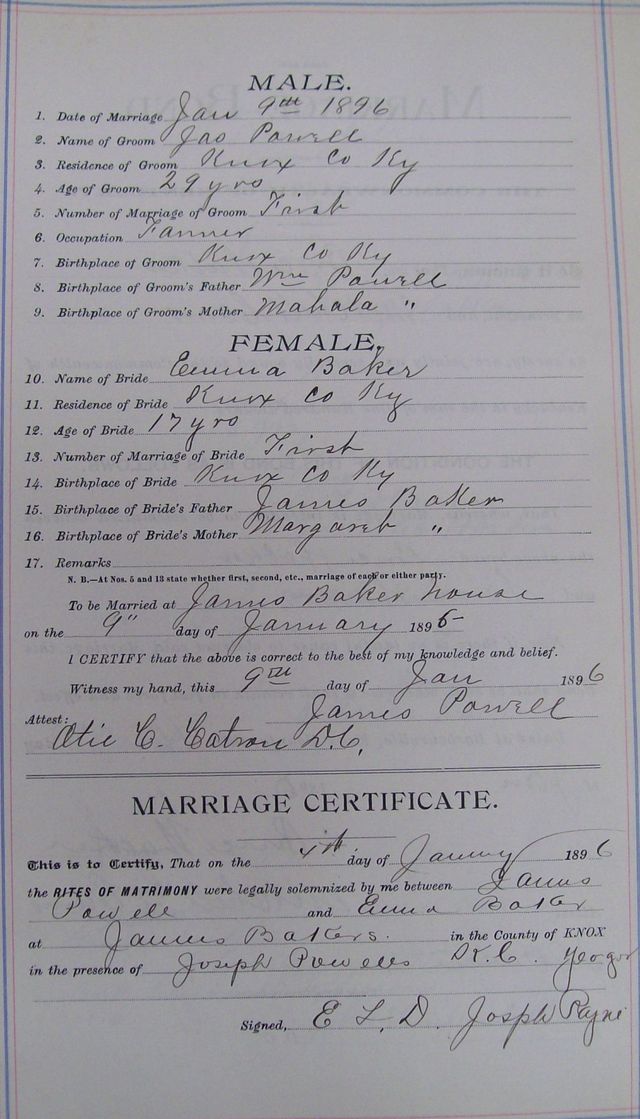 MALE.
1. Date of Marriage Jan 9th 1896
2. Name of Groom Jas Powell
3. Residence of Groom Knox Co Ky
4. Age of Groom 29 yrs
5. Number of Marriage of Groom First
6. Occupation Farmer
7. Birthplace of Groom Knox Co Ky
8. Birthplace of Groom's Father Wm Powell
9. Birthplace of Groom's Mother Mahala "
FEMALE.
10. Name of Bride Emma Baker
11. Residence of Bride Knox Co Ky
12. Age of Bride 17 yrs
13. Number of Marriage of Bride First
14. Birthplace of Bride Knox Co Ky
15. Birthplace of Bride's Father James Baker
16. Birthplace of Bride's Mother Margaret "
17. Remarks
N. B.—At Nos. 5 and 13 state whether first, second, etc., marriage of each or either party.
To be Married at James Baker house
on the 9" day of January 1895
I CERTIFY that the above is correct to the best of my knowledge and belief.
Witness my hand, this 9th day of Jan 1896
James Powell
Attest:
Otie C. Catron D.C.
MARRIAGE CERTIFICATE.
This is to Certify, That on the day of January 1896
the RITES OF MATRIMONY were legally solemnized by me between James
Powell and Emma Baker
at James Bakers. in the County of KNOX
in the presence of Joseph Powells
Signed, E L, D. Josph Payne